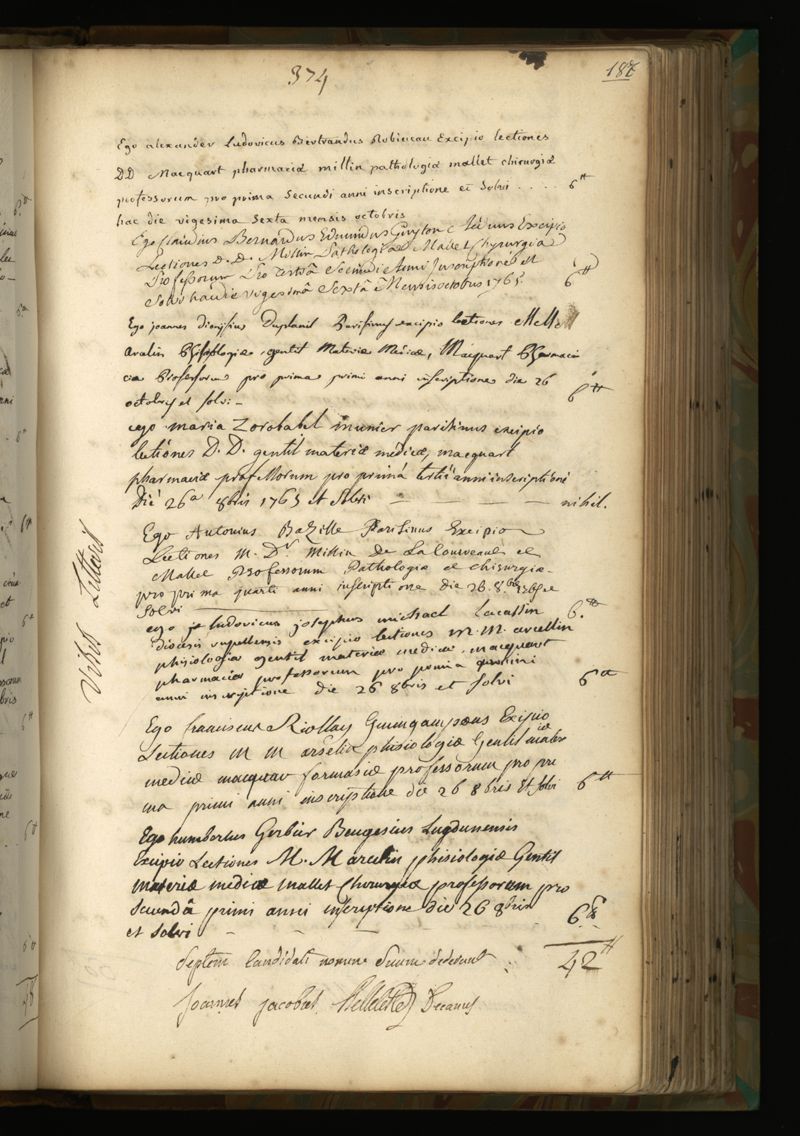 374
187
Ego alexander Ludovicus Bertrandus Robineau Excipio lectiones
DD Macquart pharmaciæ millin pathologiæ mallet chirurgiæ
professorum pro prima secundi anni inscriptione et solvi .... 6tt
hac die vigesima sexta mensis octobris
Ego Claudius Bernardus Edmundus Guyton Excipio
Lectiones D.D. Millin Pathologiæ Mallet Chyrurgiæ
Professorum Pro tertiâ Secundi Anni Inscriptione et
Solvi hac die vigesimâ Sextâ Mensis octobris 1765. 6tt
Ego joannes dionysius Duplanil Parisinus excipio lectiones
gentil Materiæ Medicæ, Macquart Pharmacia
ciæ Professorum pro prima primi anni inscriptione die 26
octobris et solvi - 6tt
ego maria Zorobabel munier parisinus excipio
lectiones D.D. gentil materiæ medicæ, macquart
pharmaciæ professorum pro primâ tertii anni inscriptione
Die 26a 8bris 1765 et Solvi — — — nihil.
Visis Litteris
Ego Antonius Bazille Parisinus Excipio
Lectiones M. Dr Millin De Lacourveaule et
Mallet Professorum Pathologiæ et chirurgiæ
pro prima quarti anni inscriptione die 26. 8bris et
Solvi 6.tt
ego ludovicus josephus michael Lacassin
diœcesis rupellensis excipio lectiones m.m. arcellin
phisiologiæ gentil materiæ medicæ macquart
pharmaciæ professorum pro prima primi
anni inscriptione die 26 8bris et solvi 6tt
Ego franciscus Riollay Guingampæus Excipio
Lectiones M M phisiologiæ Gentil materiæ
medicæ macquar formasiæ professorum pro pri
ma primi anni inscriptione die 26 8bris et solvi 6tt
Ego humbertus Gerbier Beugesius Lugdunensis
Excipio Lectiones M. M phisiologiæ Gentil
materiæ medicæ mallet Chirurgiæ professorum pro
Secundâ primi anni inscriptione die 26 8bris
et Solvi - - - 6.tt
Septem Candidati nomen Suum dederunt : 42tt
Joannes jacobus Belleteste Decanus